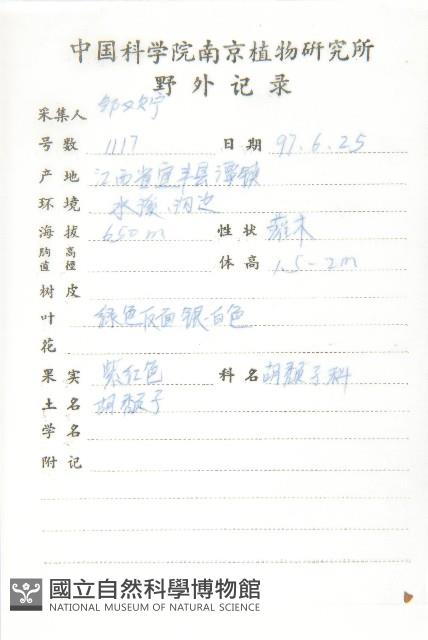 中国科学院南京植物研究所
野外记录
采集人
号数 1117 日期 97.6.25
产地 江西省宜丰县潭镇
环境 水溪.沟边
海拔 650m 性状 灌木
胸高直徑 体高 1.5-2m
树皮
叶 绿色反面银白色
花
果实 紫红色 科名 胡颓子科
土名 胡颓子
学名
附记
國立自然科學博物館
NATIONAL MUSEUM OF NATURAL SCIENCE